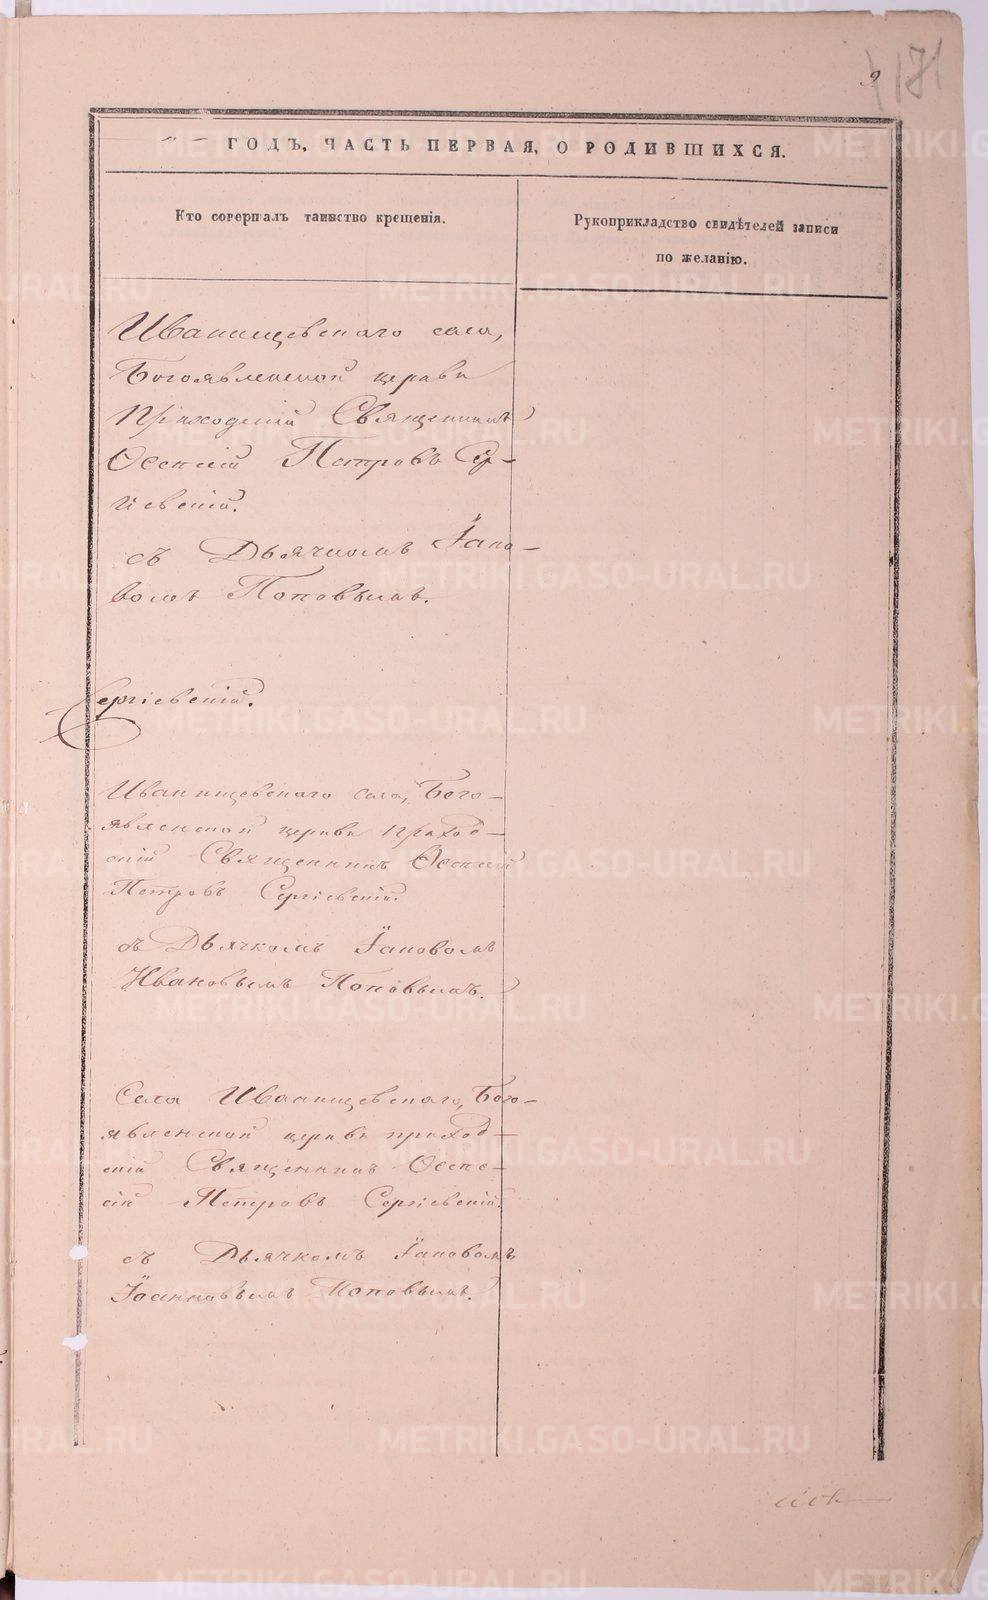 9
181
ГОДЪ, ЧАСТЬ ПЕРВАЯ, О РОДИВШИХСЯ.
Кто совершалъ таинство крещенія.
Рукоприкладство свидѣтелей записи
по желанію.
Иванищевскаго села,
Богоявленской церкви
Приходскій Священникъ
Евсевій Петровъ Сер-
гіевскій.
съ Дьячкомъ Іако-
вомъ Поповымъ.
Сергіевскій.
Иванищевскаго села, Бого-
явленской церкви приход-
скій Священникъ Евсевій
Петровъ Сергіевскій.
съ Дьячкомъ Іаковомъ
Ивановымъ Поповымъ.
Села Иванищевскаго, Бого-
явленской церкви приход-
скій Священникъ Евсе-
вій Петровъ Сергіевскій.
съ Дьячкомъ Іаковомъ
Іоанновымъ Поповымъ.
METRIKI.GASO-URAL.RU